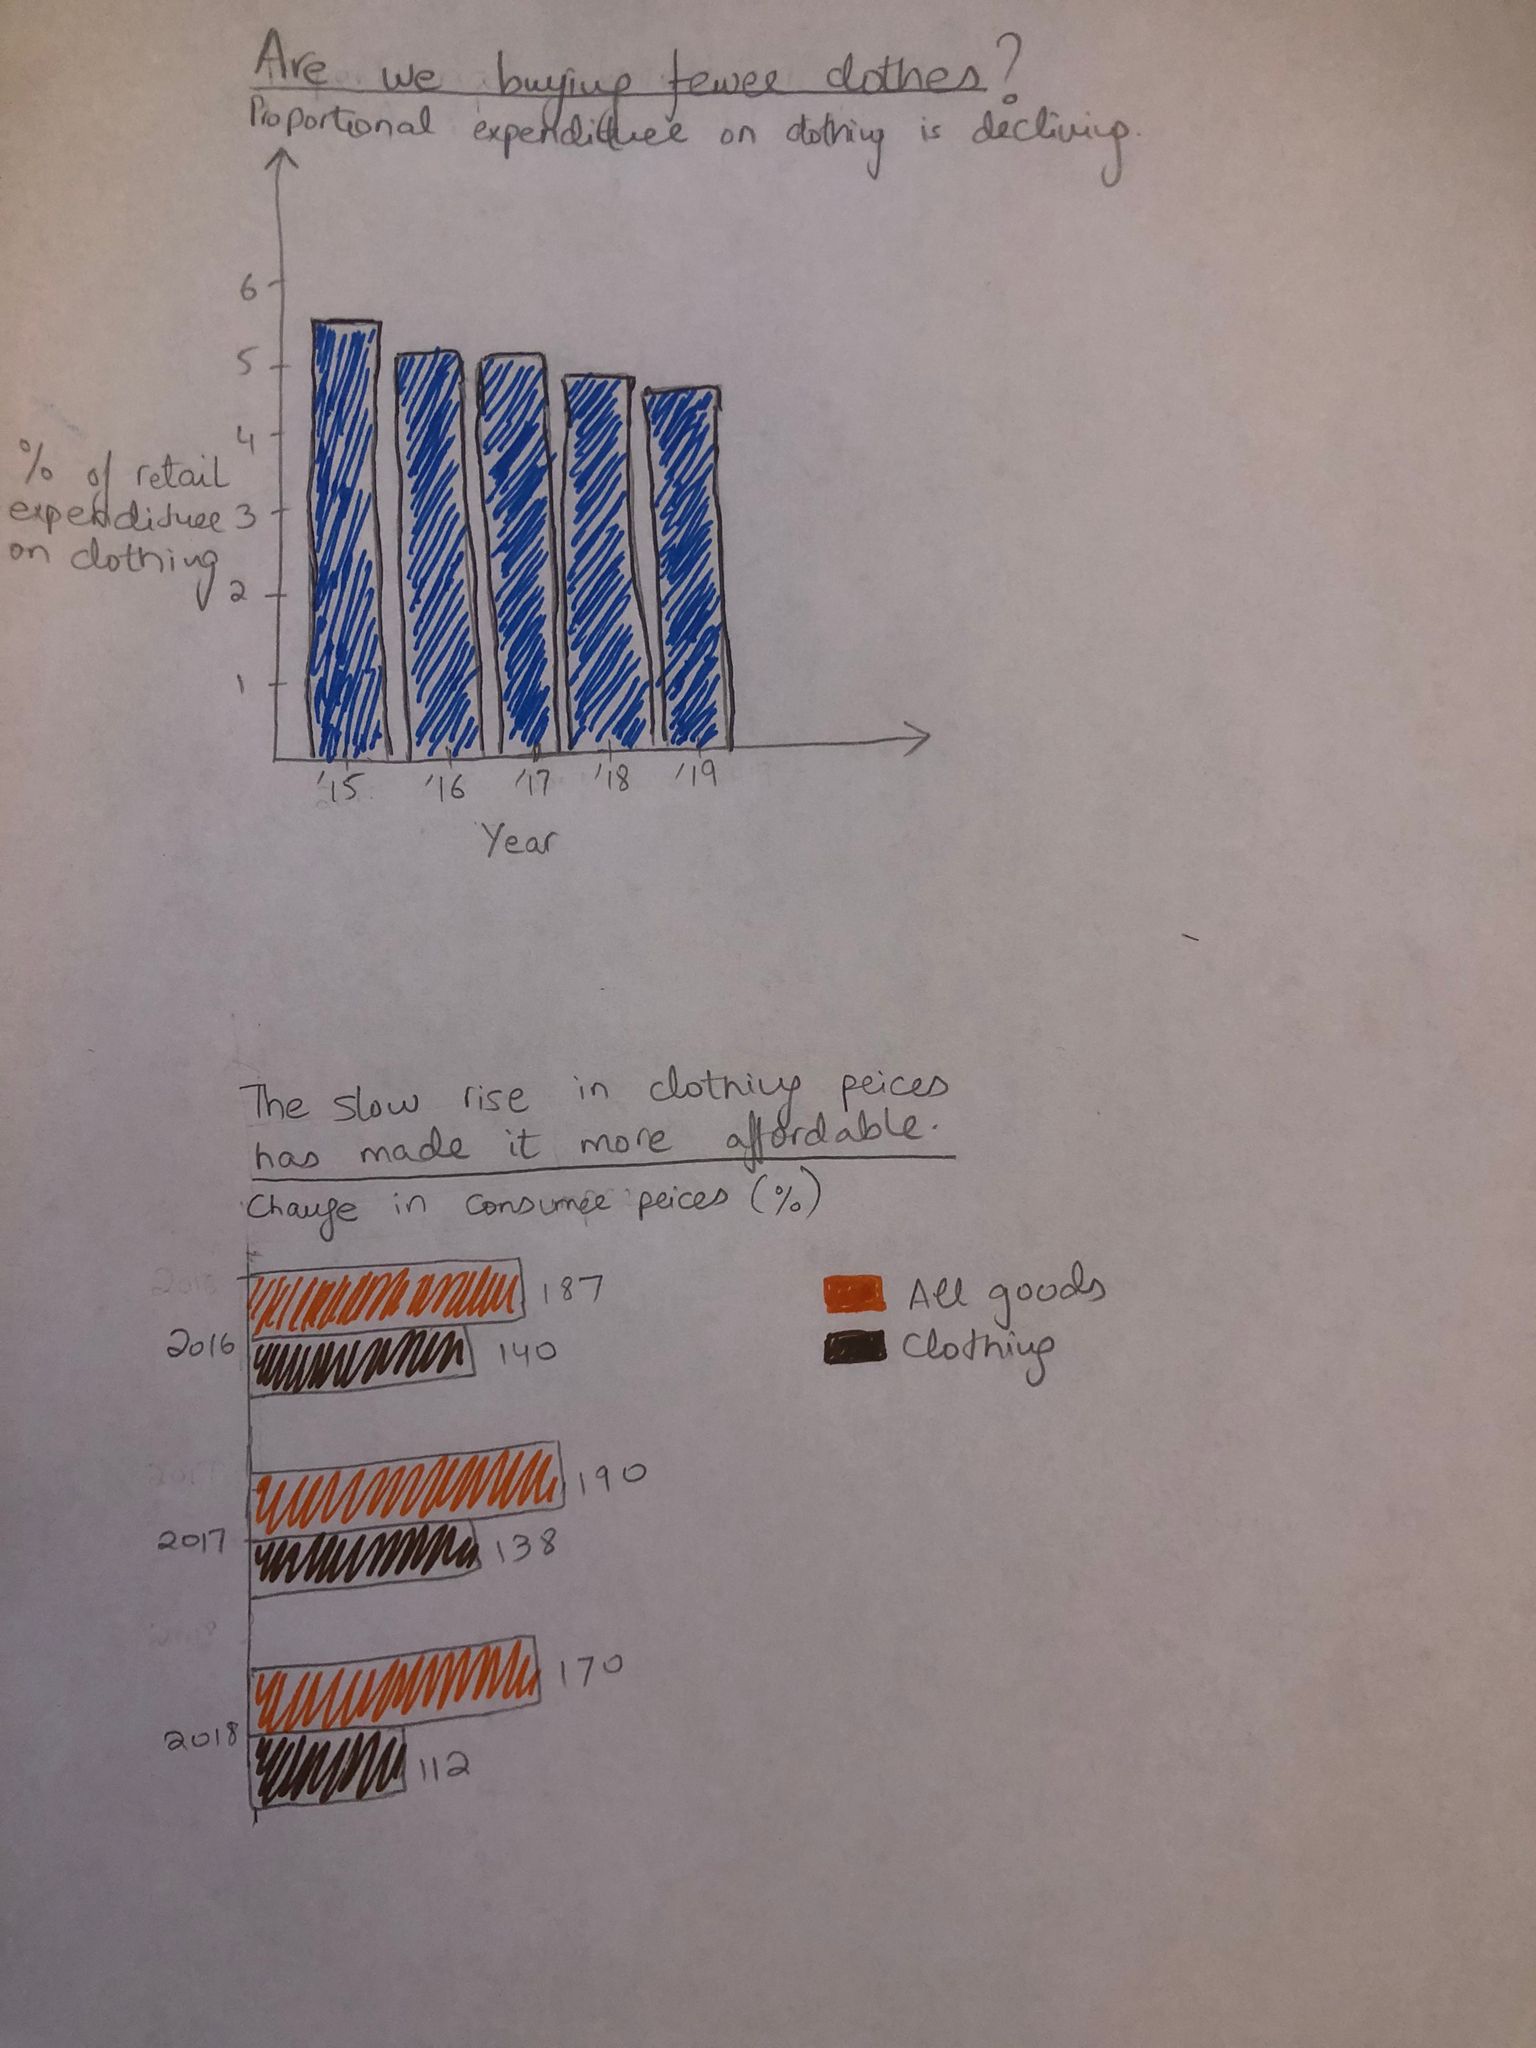 Are we buying fewer clothes?
Proportional expenditure on clothing is declining.
6
5
4
3
2
1
% of retail
expenditure
on clothing
'15 '16 '17 '18 '19
Year
The slow rise in clothing prices
has made it more affordable.
Change in consumer prices (%)
187
2016
140
All goods
Clothing
190
2017
138
170
2018
112